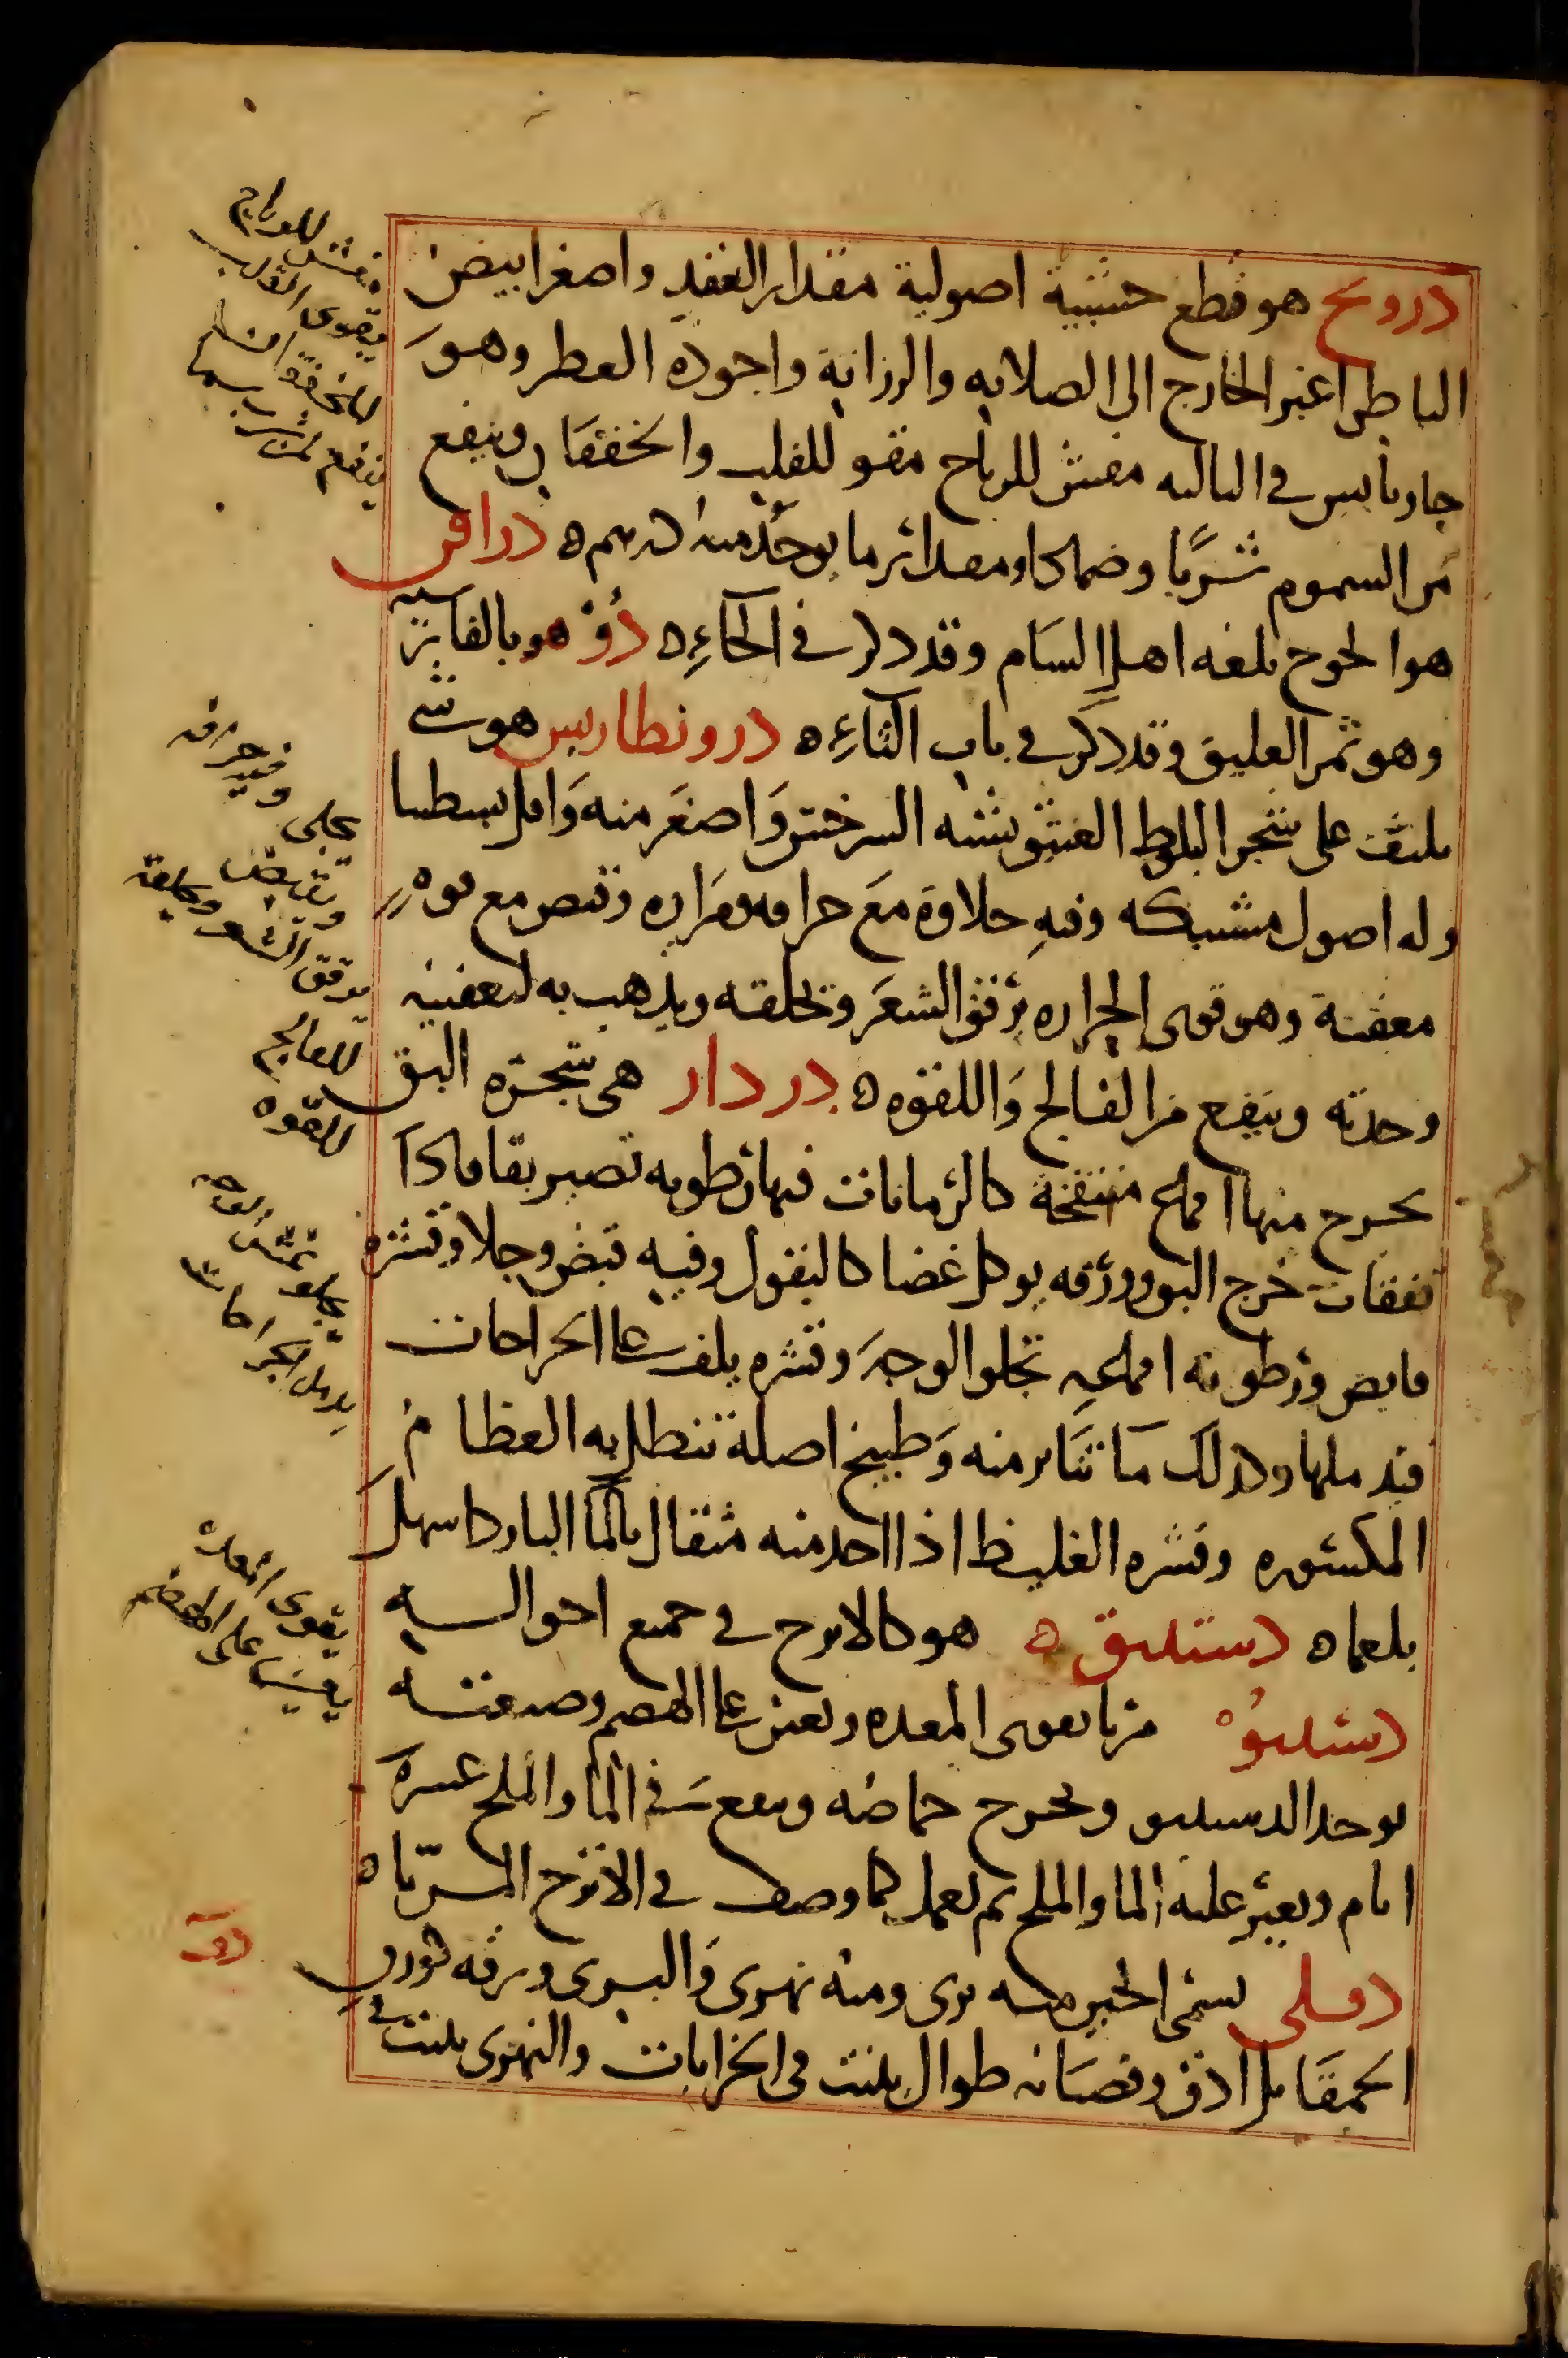 درونج هو قطع خشبية اصولية مقدار العقد واصغر ابيض
الباطن اغبر الخارج الى الصلابه والرزانة واجوده العطر وهو
حار يابس في الثالثه مفش للرياح مقو للقلب والخفقان وينفع
من السموم شربا وضمادا ومقدار ما يوخذ منه درهم ه دراقن
هو الخوخ بلغه اهل الشام وقد ذكر في الخاء ه
وهو ثمر العليق وقد ذكر في باب الثاء ه درونطارس هو شي
يلتف على شجر البلوط العتيق يشبه السرخس واصغر منه واقل تشطبا
وله اصول مشبكه وفيه حلاوة مع حرافه ومراره وقبض مع قوه
معفنة وهو قوى الحراره يرقق الشعر وتحلقه ويذهب به لتعفينه
وحدته وينفع من الفالج واللقوه ه دردار هي شجره البق
يخرج منها اقماع منتفخة كالرمانات فيها رطوبه تصير بقا فاذا
تفقات خرج البق وورقه يوكل غضا كالبقول وفيه قبض وجلا وقشره
قابض ورطوبه اقماعه تجلو الوجه وقشره يلف على الجراحات
فيدملها وكذلك ما تناثر منه وطبيخ اصله تنطل به العظام
المكسوره وقشره الغليظ اذا اخذ منه مثقال بالما البارد اسهل
بلغما ه دستنبوه هو كالاترج في جميع احواله
دستنبوه مربا يقوى المعده ويعين على الهضم وصنعته
يوخذ الدستنبو ويخرج حماضه وينقع في الما والملح عشره
ايام ويغير عليه الما والملح ثم يعمل كما وصف في الاترج المربا ه
دفلى يسمى الحبن منه برى ومنه نهرى والبرى ورقه كورق
الحمقا بل ادق وقضبانه طوال ينبت في الخرابات والنهرى ينبت في
مفش للرياح
يقوى القلب
للخفقان
ينفع من شرب
وفيه حرافه
يرقق الشعر ويحلقه
للفالج
للقوه
يجلو الوجه
يدمل الجراحات
يقوى المعده
يعين على الهضم